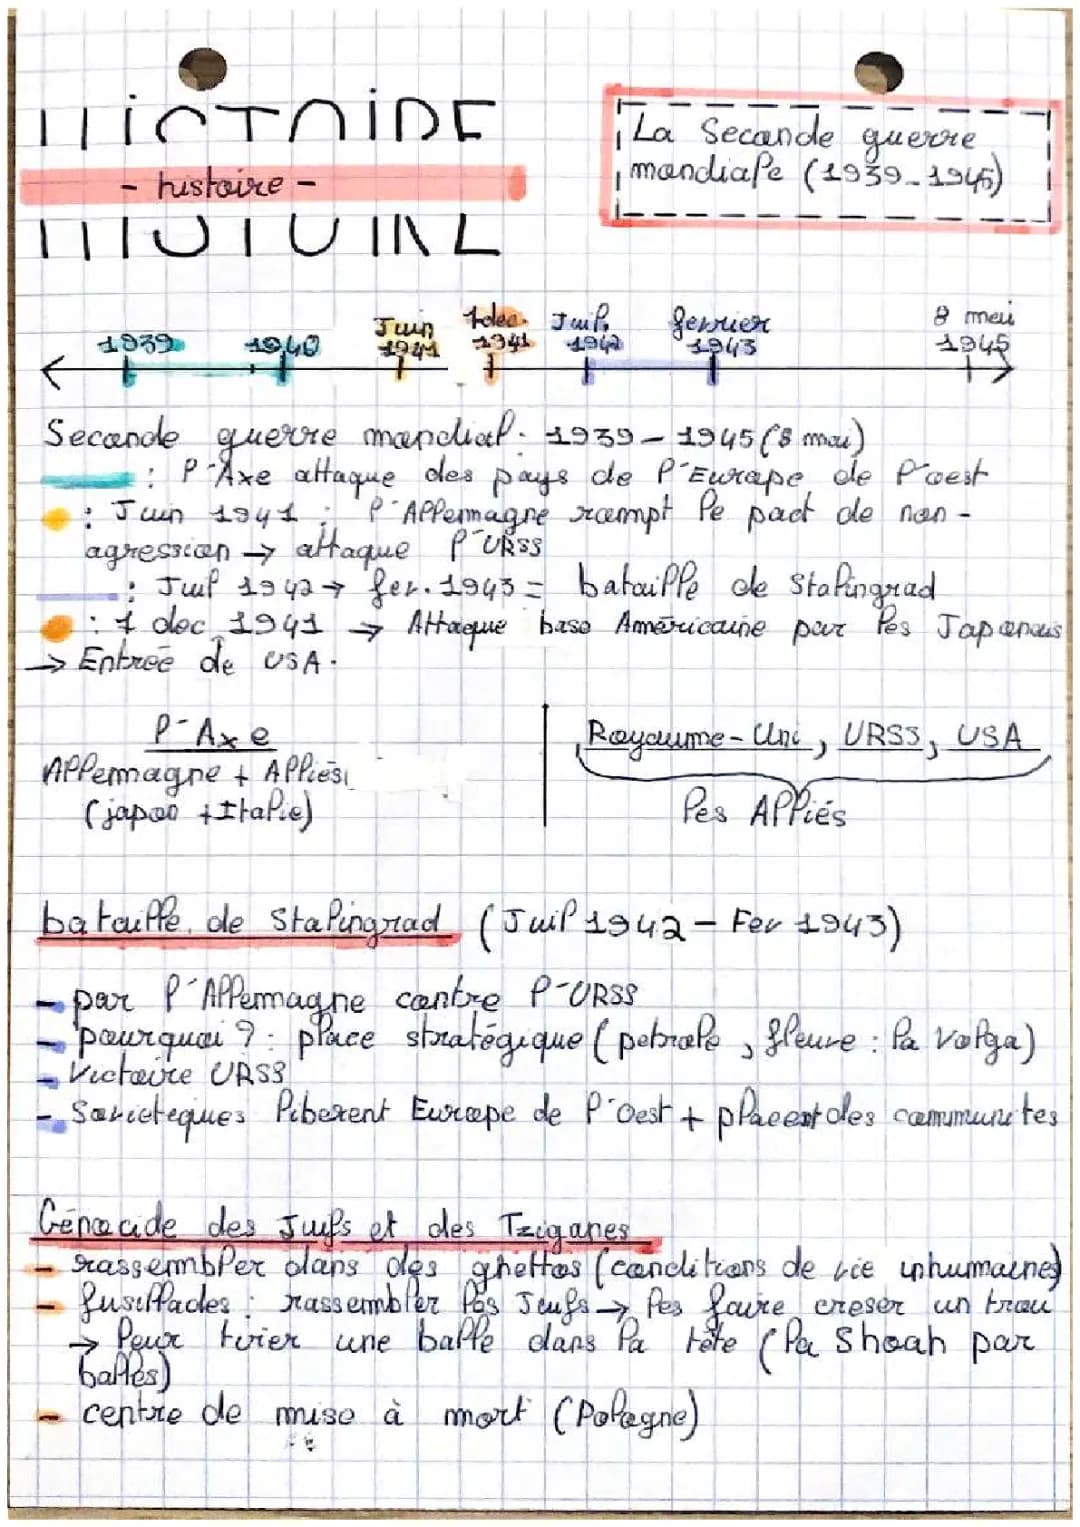 HISTOIRE
- histoire -
La Seconde guerre
mondiale (1939-1945)
1939 1940 Juin 1941 7 dec. 1941 Juil. 1942 fevrier 1943 8 mai 1945
Seconde guerre mondial. 1939 - 1945 (8 mai)
: l'Axe attaque des pays de l'Europe de l'oest
: Juin 1941 : l'Allemagne rompt le pact de non -
agression → attaque l'URSS
: Juil 1942 → fev. 1943 = bataille de Stalingrad
: 7 dec 1941 → Attaque base Américaine par les Japonais
→ Entrée de USA.
l'Axe
Allemagne + Alliés
(japon + Italie)
Royaume-Uni, URSS, USA
les Alliés
bataille de Stalingrad (Juil 1942 - Fev 1943)
- par l'Allemagne contre l'URSS
- pourquoi ? : place stratégique (petrole, fleuve : la Volga)
- Victoire URSS
- Sovieteques liberent Europe de l'Oest + placent des communites
Génocide des Juifs et des Tziganes
- rassembler dans des ghettos (conditions de vie inhumaines)
- fusillades : rassembler les Juifs → les faire creser un trou
→ leur tirer une balle dans la tête (la Shoah par
balles)
- centre de mise à mort (Pologne)